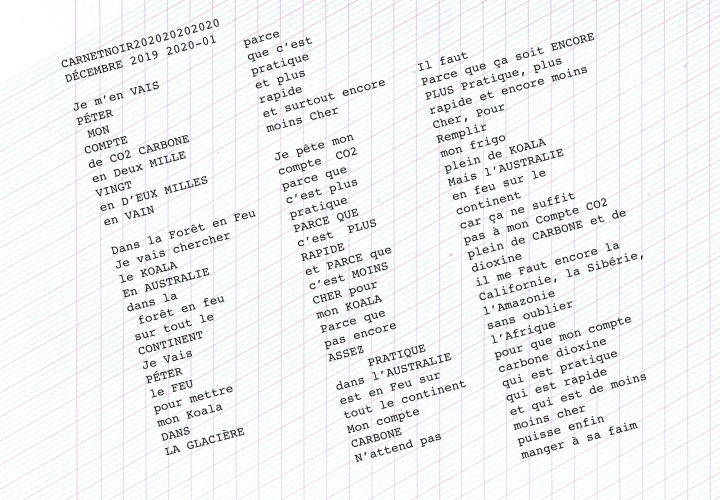 CARNETNOIR202020202020
DÉCEMBRE 2019 2020-01
Je m'en VAIS
PÉTER
MON
COMPTE
de CO2 CARBONE
en Deux MILLE
VINGT
en D'EUX MILLES
en VAIN
Dans la Forêt en Feu
Je vais chercher
le KOALA
En AUSTRALIE
dans la
forêt en feu
sur tout le
CONTINENT
Je Vais
PÉTER
le FEU
pour mettre
mon Koala
DANS
LA GLACIÈRE
parce
que c'est
pratique
et plus
rapide
et surtout encore
moins Cher
Je pête mon
compte CO2
parce que
c'est plus
pratique
PARCE QUE
c'est PLUS
RAPIDE
et PARCE que
c'est MOINS
CHER pour
mon KOALA
Parce que
pas encore
ASSEZ
PRATIQUE
dans l'AUSTRALIE
est en Feu sur
tout le continent
Mon compte
CARBONE
N'attend pas
Il faut
Parce que ça soit ENCORE
PLUS Pratique, plus
rapide et encore moins
Cher, Pour
Remplir
mon frigo
plein de KOALA
Mais l'AUSTRALIE
en feu sur le
continent
car ça ne suffit
pas à mon Compte CO2
plein de CARBONE et de
dioxine
il me Faut encore la
Californie, la Sibérie,
l'Amazonie
sans oublier
l'Afrique
pour que mon compte
carbone dioxine
qui est pratique
qui est rapide
et qui est de moins
moins cher
puisse enfin
manger à sa faim